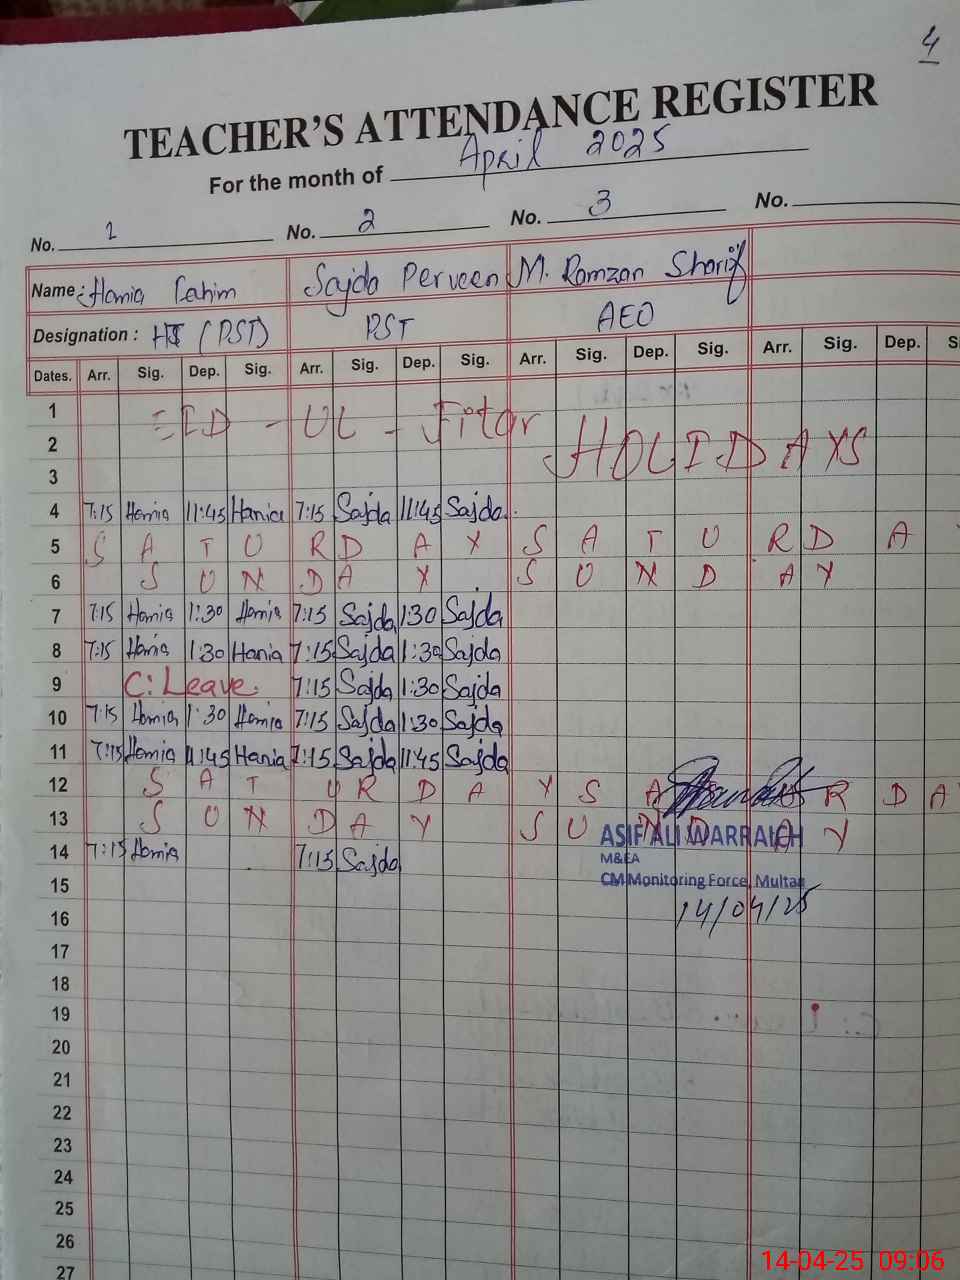 4
TEACHER'S ATTENDANCE REGISTER
For the month of April 2025
No. 1 No. 2 No. 3 No.
Name: Hamia Sajda Perveen M. Ramzan Sharif
Designation: (PST) PST AEO
Dates. Arr. Sig. Dep. Sig. Arr. Sig. Dep. Sig. Arr. Sig. Dep. Sig. Arr. Sig. Dep. S
1 EID - UL - Fitar
2 HOLIDAYS
3
4 7:15 Hamia 11:45 Hania 7:15 Sajda 11:45 Sajda
5 S A T U R D A Y S A T U R D A Y
6 S U N D A Y S U N D A Y
7 7:15 Hamia 1:30 Hamia 7:15 Sajda 1:30 Sajda
8 7:15 Hania 1:30 Hania 7:15 Sajda 1:30 Sajda
9 C: Leave. 7:15 Sajda 1:30 Sajda
10 7:15 Hamia 1:30 Hamia 7:15 Sajda 1:30 Sajda
11 7:15 Hamia 11:45 Hania 7:15 Sajda 11:45 Sajda
12 S A T U R D A Y S A R D A
13 S U N D A Y S U N D A Y
ASIF ALI WARRAICH
14 7:15 Hamia 7:15 Sajda
M&EA
15
CM Monitoring Force, Multan
16
14/04/25
17
18
19
20
21
22
23
24
25
26
27
14-04-25 09:06